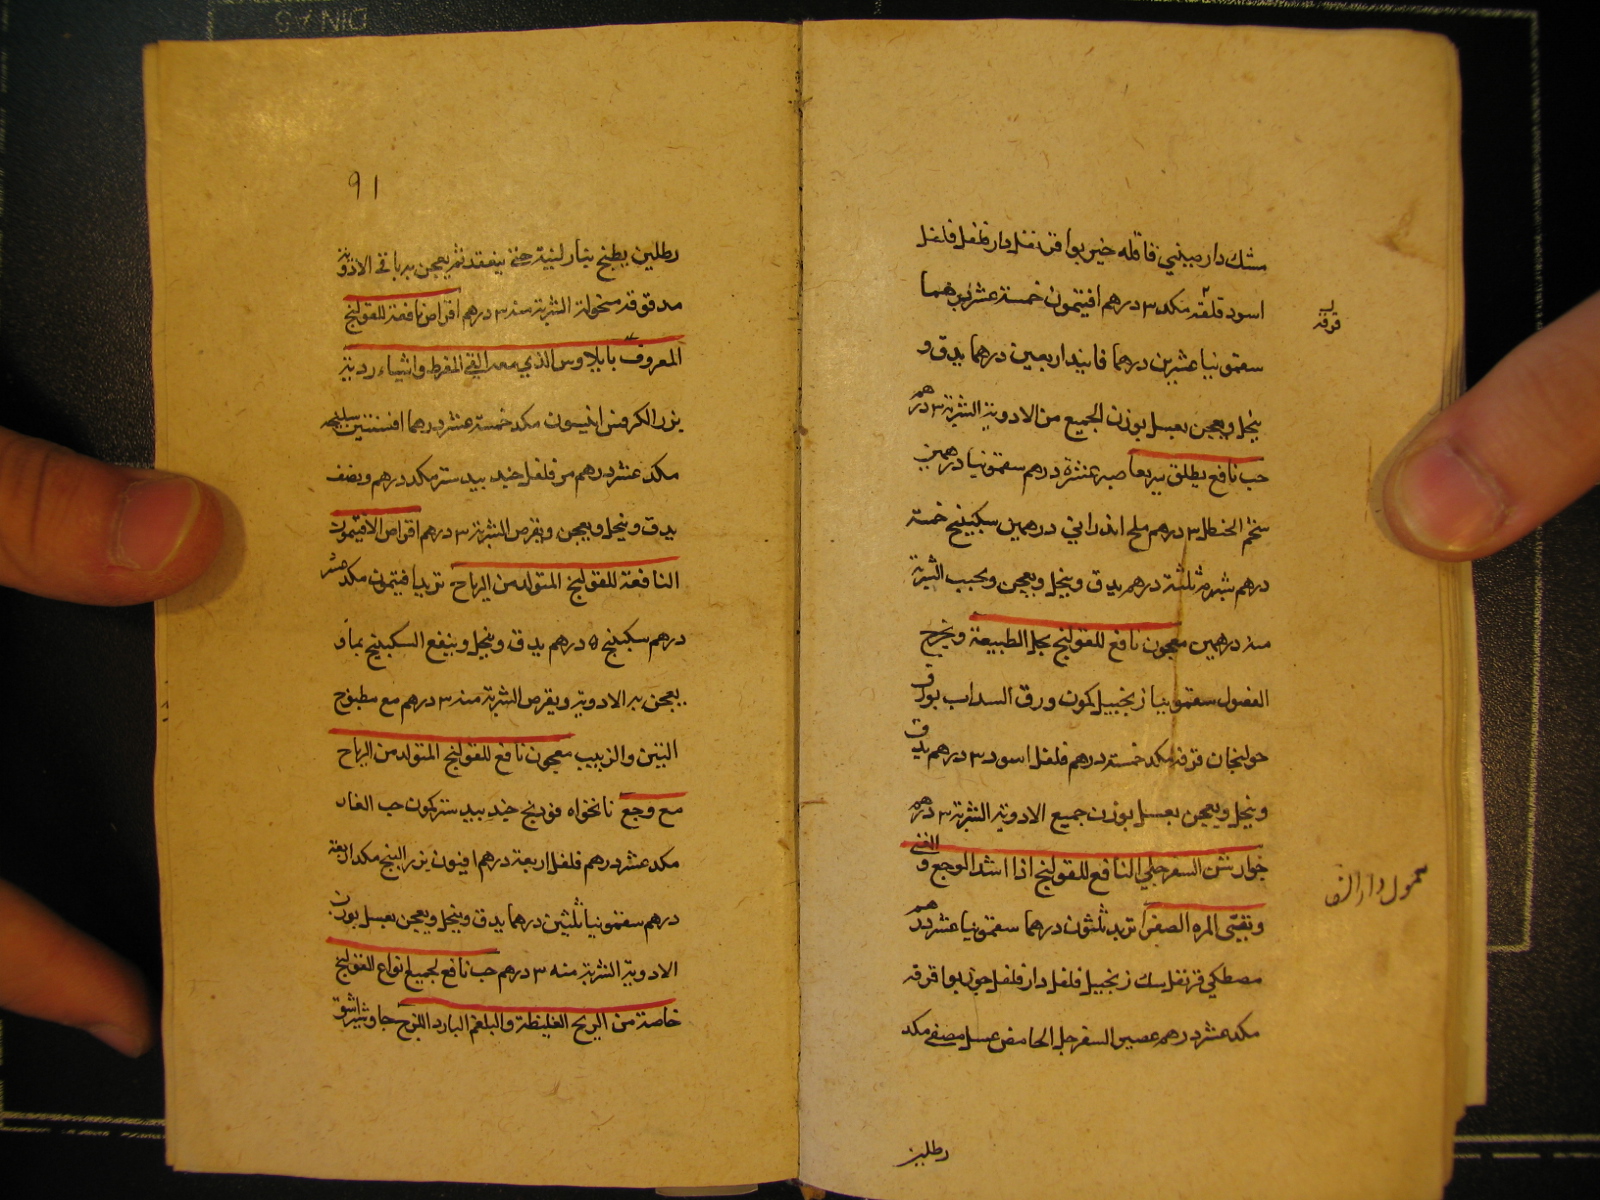 مشك دار صيني قاقله خير بوا قرنفل دار فلفل فلفل
اسود قلفة مكد ٣ درهم افتيمون خمسة عشر درهما
قرفه
سقمونيا عشرين درهما فانيد اربعين درهما يدق و
ينخل ويعجن بعسل بوزن الجميع من الادوية الشربة ٣ درهم
حب نافع يطلق سريعا صبر عشرة درهم سقمونيا درهمين
شحم الحنظل ٣ درهم ملح اندراني درهمين سكبينج خمسة
درهم شبرم ثلثة درهم يدق وينخل ويعجن ويحبب الشربة
منه درهمين معجون نافع للقولنج يحل الطبيعة ويخرج
الفضول سقمونيا زنجبيل كمون ورق السداب بورق
خولنجان قرفه مكد خمسة درهم فلفل اسود ٣ درهم يدق
وينخل ويعجن بعسل بوزن جميع الادوية الشربة ٣ درهم
جوارشن السفرجلي النافع للقولنج اذا اشتد الوجع و القي
وتقيى المره الصفرا تربد ثلثون درهما سقمونيا عشر درهم
مصطكي قرنفل سك زنجبيل فلفل دار فلفل جوز بوا قرفه
مكد عشر درهم عصير السفرجل الحامض عسل مصفى مكد
رطلين
٩١
رطلين يطبخ بنار لينة حتى ينعقد ثم يعجن به باقي الادوية
مدقوقة منخولة الشربة منه ٣ درهم اقراص نافعة للقولنج
المعروف بايلاوس الذي معه القي المفرط واشياء ردية
بزر الكرفس انيسون مكد خمسة عشر درهما افسنتين سليخه
مكد عشر درهم مر فلفل جند بيدستر مكد درهم ونصف
يدق وينخل ويعجن ويقرص الشربة ٣ درهم اقراص الافتيمون
النافعة للقولنج المتولد من الرياح تربد افتيمون مكد عشر
درهم سكبينج ٥ درهم يدق وينخل وينقع السكبينج بماء و
يعجن به الادوية ويقرص الشربة منه ٣ درهم مع مطبوخ
التين والزبيب معجون نافع للقولنج المتولد من الرياح
مع وجع نانخواه فودنج جند بيدستر كمون حب الغار
مكد عشر درهم فلفل اربعة درهم افيون بزر البنج مكد اربعة
درهم سقمونيا ثلثين درهما يدق وينخل ويعجن بعسل بوزن
الادوية الشربة منه ٣ درهم حب نافع لجميع انواع القولنج
خاصة من الريح الغليظة والبلغم البارد اللزج جاوشير اشق